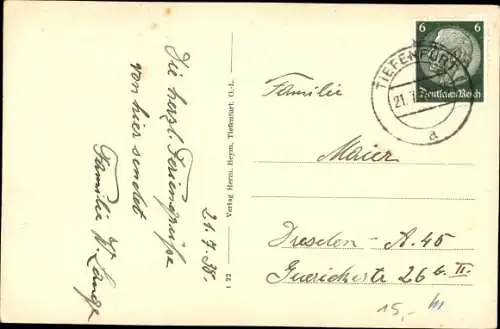 Die herzl. Feriengrüße
von hier sendet
Familie W. Lange
21.7.38.
Verlag Herm. Heym, Tiefenfurt, O.-L.
1 22
6 6
Deutsches Reich
TIEFENFURT
21.7.
a
Familie
Maier
Dresden - A. 45
Guerickestr. 26 b. II.
15,-